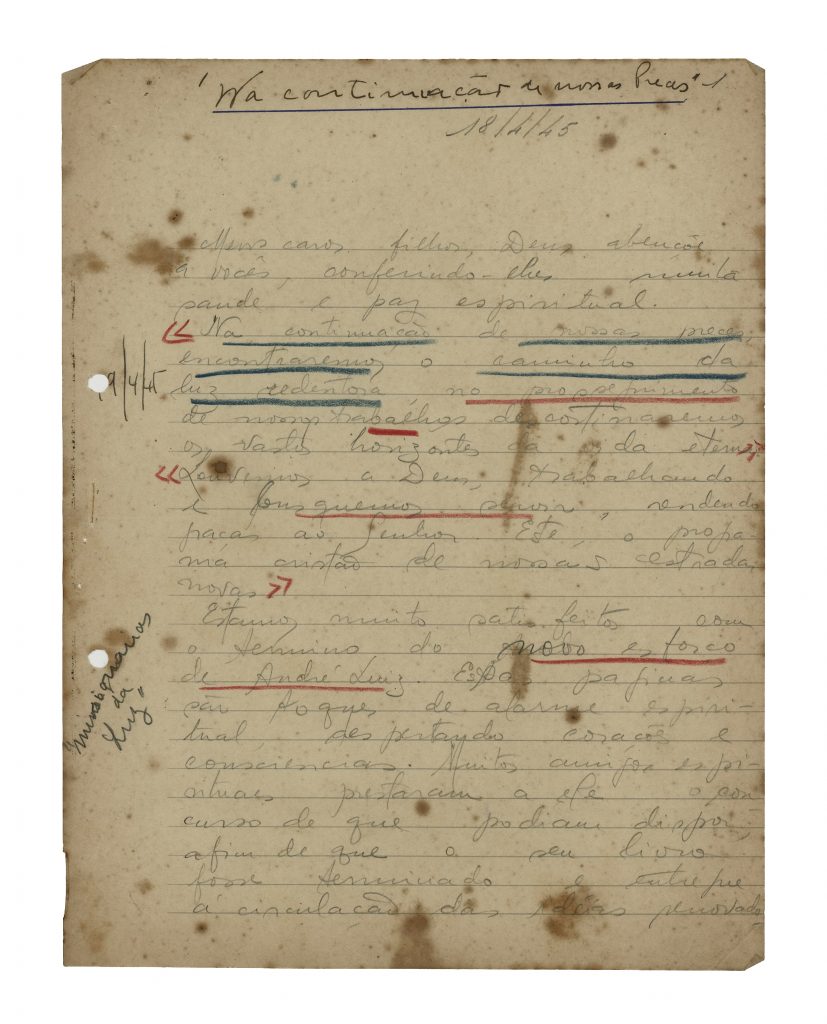 "Na continuação de nossas Preces" 1
18/4/45
Meus caros filhos, Deus abençôe
a vocês, conferindo-lhes muita
saude e paz espiritual.
« Na continuação de nossas preces,
encontraremos o caminho da
luz redentora no prosseguimento
19/4/45
de nossos trabalhos descortinaremos
os vastos horizontes da vida eterna »
« Louvemos a Deus, trabalhando
e busquemos servir, rendendo
graças ao Senhor. Este, o progra-
ma cristão de nossas estradas
novas »
Estamos muito satisfeitos com
o termino do novo esforco
de André Luiz. Essas paginas
são toques de alarme espiri-
tual, despertando corações e
consciencias. Muitos amigos espi-
rituaes prestaram a ele o con-
curso de que podiam dispor,
afim de que o seu livro
fosse terminado e entregue
á circulação das idéias renovado-
"Missionarios
da
Luz"